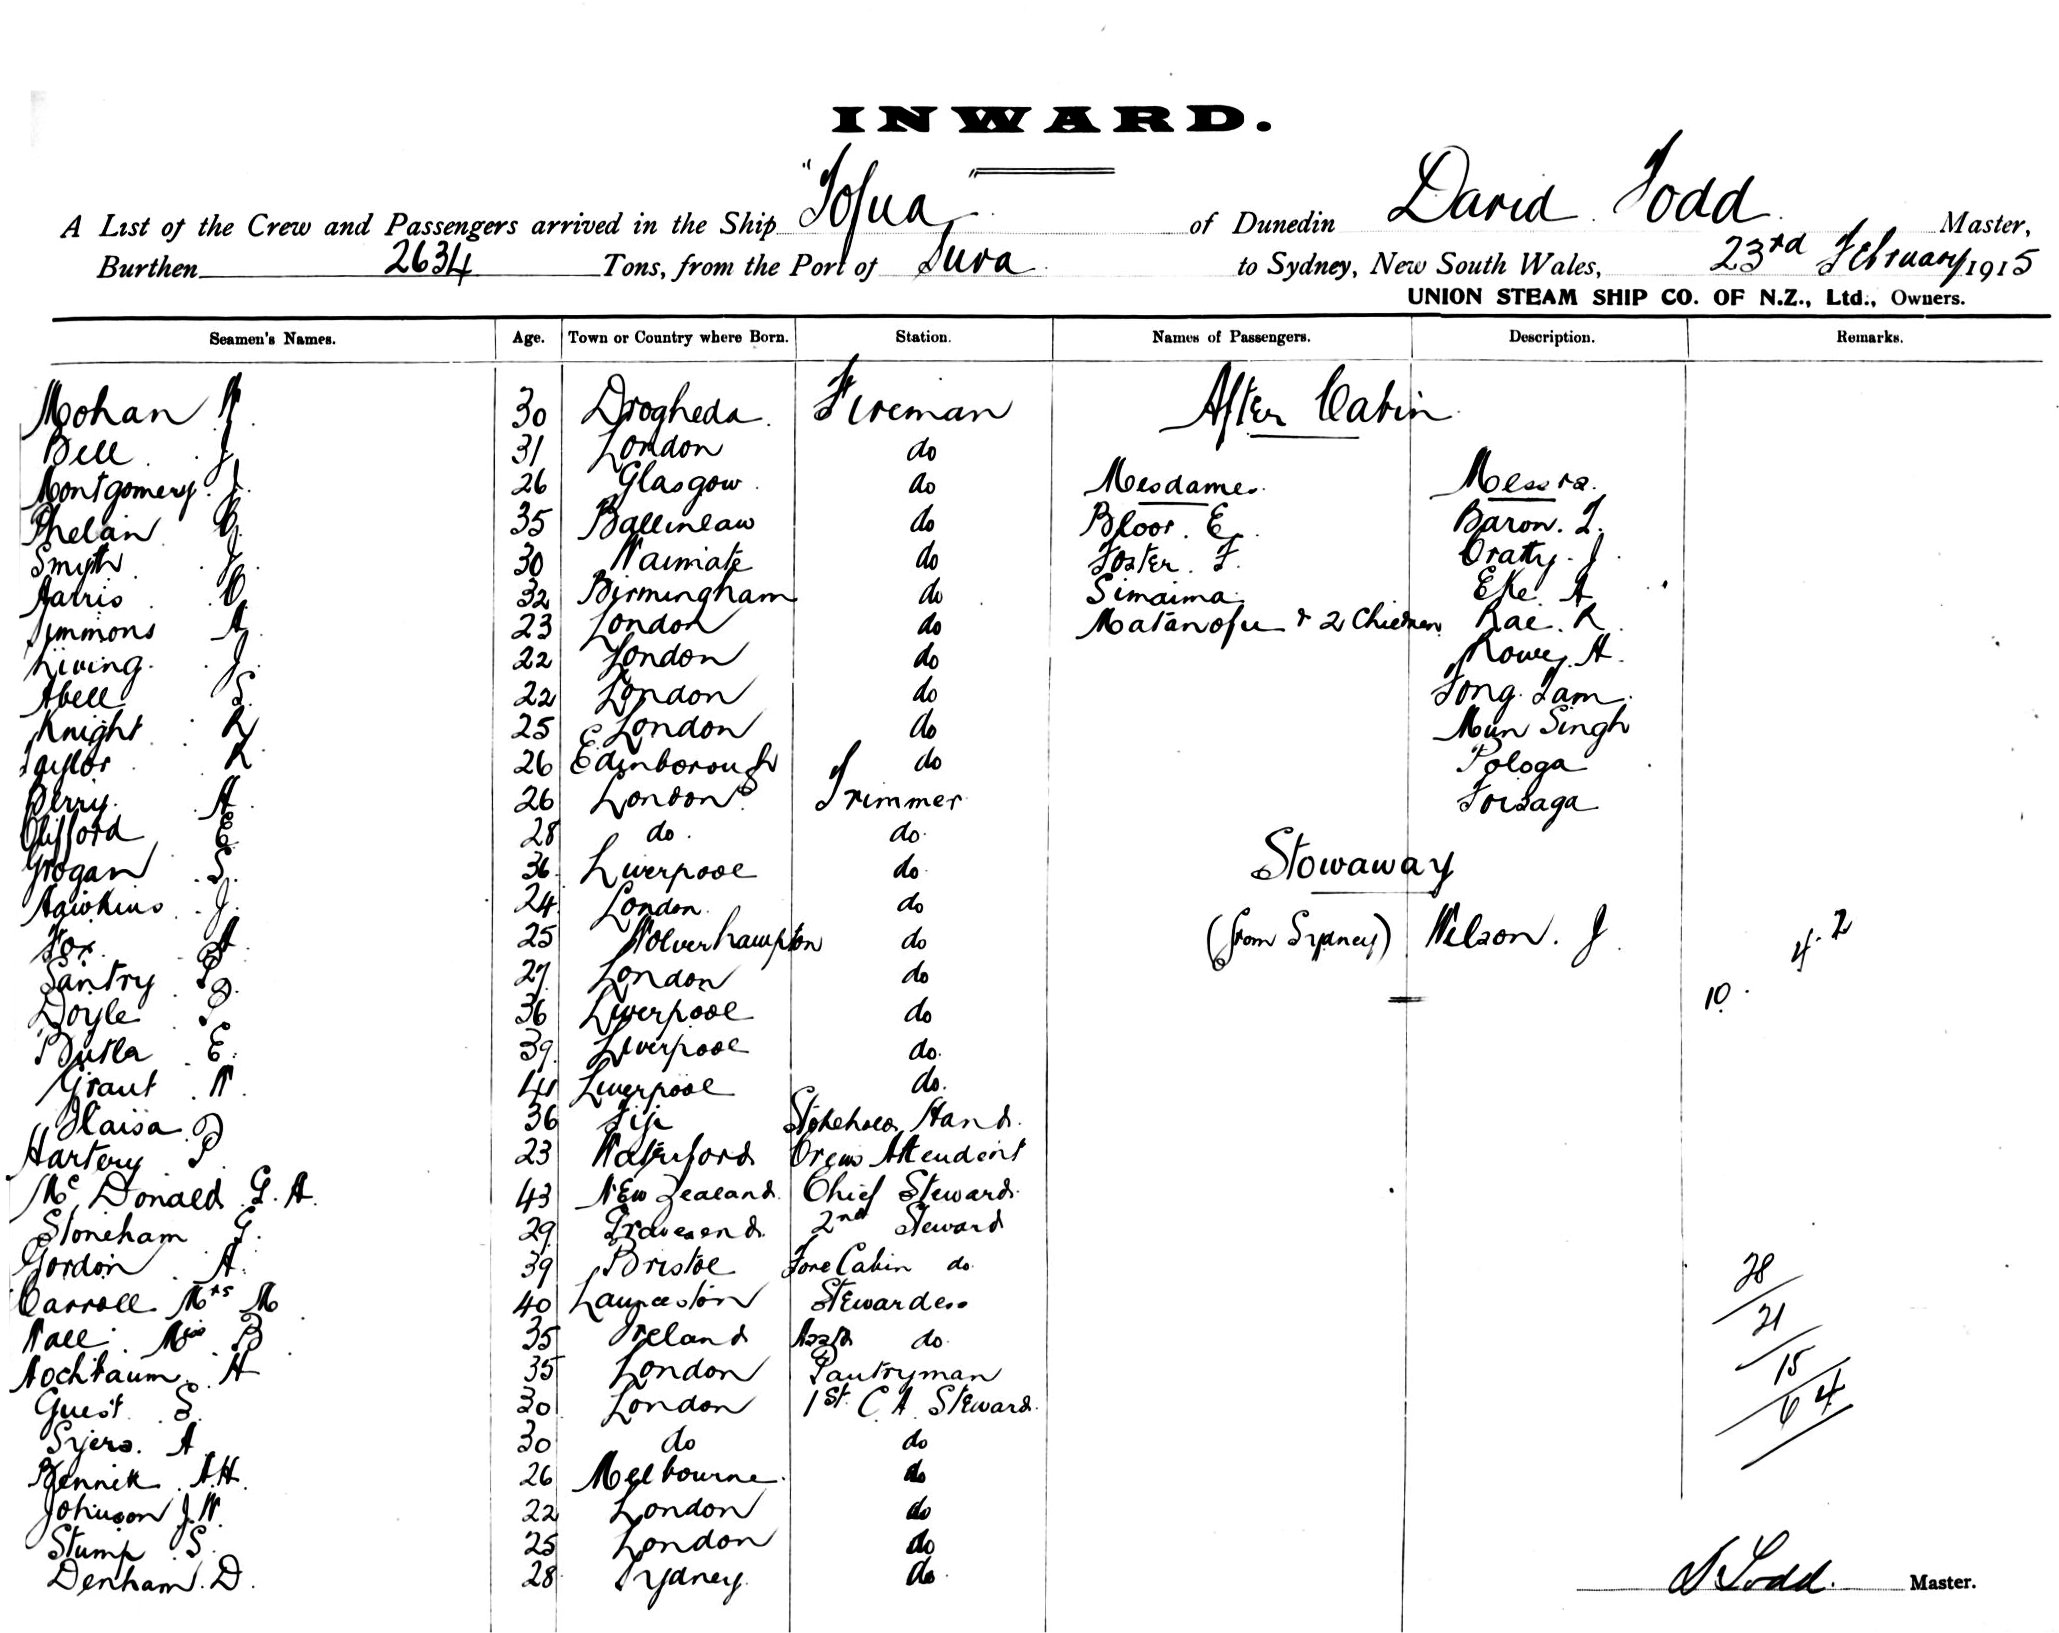 INWARD.
A List of the Crew and Passengers arrived in the Ship "Tofua" of Dunedin David Todd Master,
Burthen 2634 Tons, from the Port of Suva to Sydney, New South Wales, 23rd February 1915
UNION STEAM SHIP CO. OF N.Z., Ltd., Owners.
Seamen's Names. Age. Town or Country where Born. Station. Names of Passengers. Description. Remarks.
Mohan W 30 Drogheda Fireman After Cabin
Bell J 31 London do
Montgomery J. 26 Glasgow do Mesdames. Messrs.
Phelan 35 Ballinlaw do Bloor. E. Baron. T.
Smyth J 30 Waimate do Foster. F. Cratty. J
Harris C 32 Birmingham do Simaima Eke A
Simmons A 23 London do Matanofu & 2 Children Rae. R
Living. J 22 London do Rowe. A.
Abell S. 22 London do Tong Lam.
Knight R 25 London do Mun Singh
Taylor R 26 Edinborough do Pologa
Berry. A 26 London Trimmer Toisaga
Clifford E 28 do. do.
Grogan S. 36 Liverpool do Stowaway
Hawkins J. 24 London. do
Fox. A 25 Wolverhampton do (from Sydney) Nelson. J 4. 2
Santry P 27 London do
Doyle P 36 Liverpool do 10.
Butla E. 39 Liverpool do.
Grant W. 41 Liverpool do.
36 Fiji Stokehold Hand.
Hartery P 23 Waterford Crews Attendant
McDonald G. A. 43 New Zealand. Chief Steward.
Stoneham G. 29 Gravesend. 2nd Steward
Gordon A. 39 Bristol Fore Cabin do. 28
Carroll Mrs M 40 Launceston Stewardess 21
Wall Miss B 35 Ireland Asst do. 15
Hochbaum. H 35 London Pantryman 64
Guest S. 30 London 1st C. A. Steward.
Syers. A 30 do do
Bennik A.H. 26 Melbourne. do
Johnson J.W. 22 London do
Stump S. 25 London do
Denham. D. 28 Sydney. do. D Todd. Master.